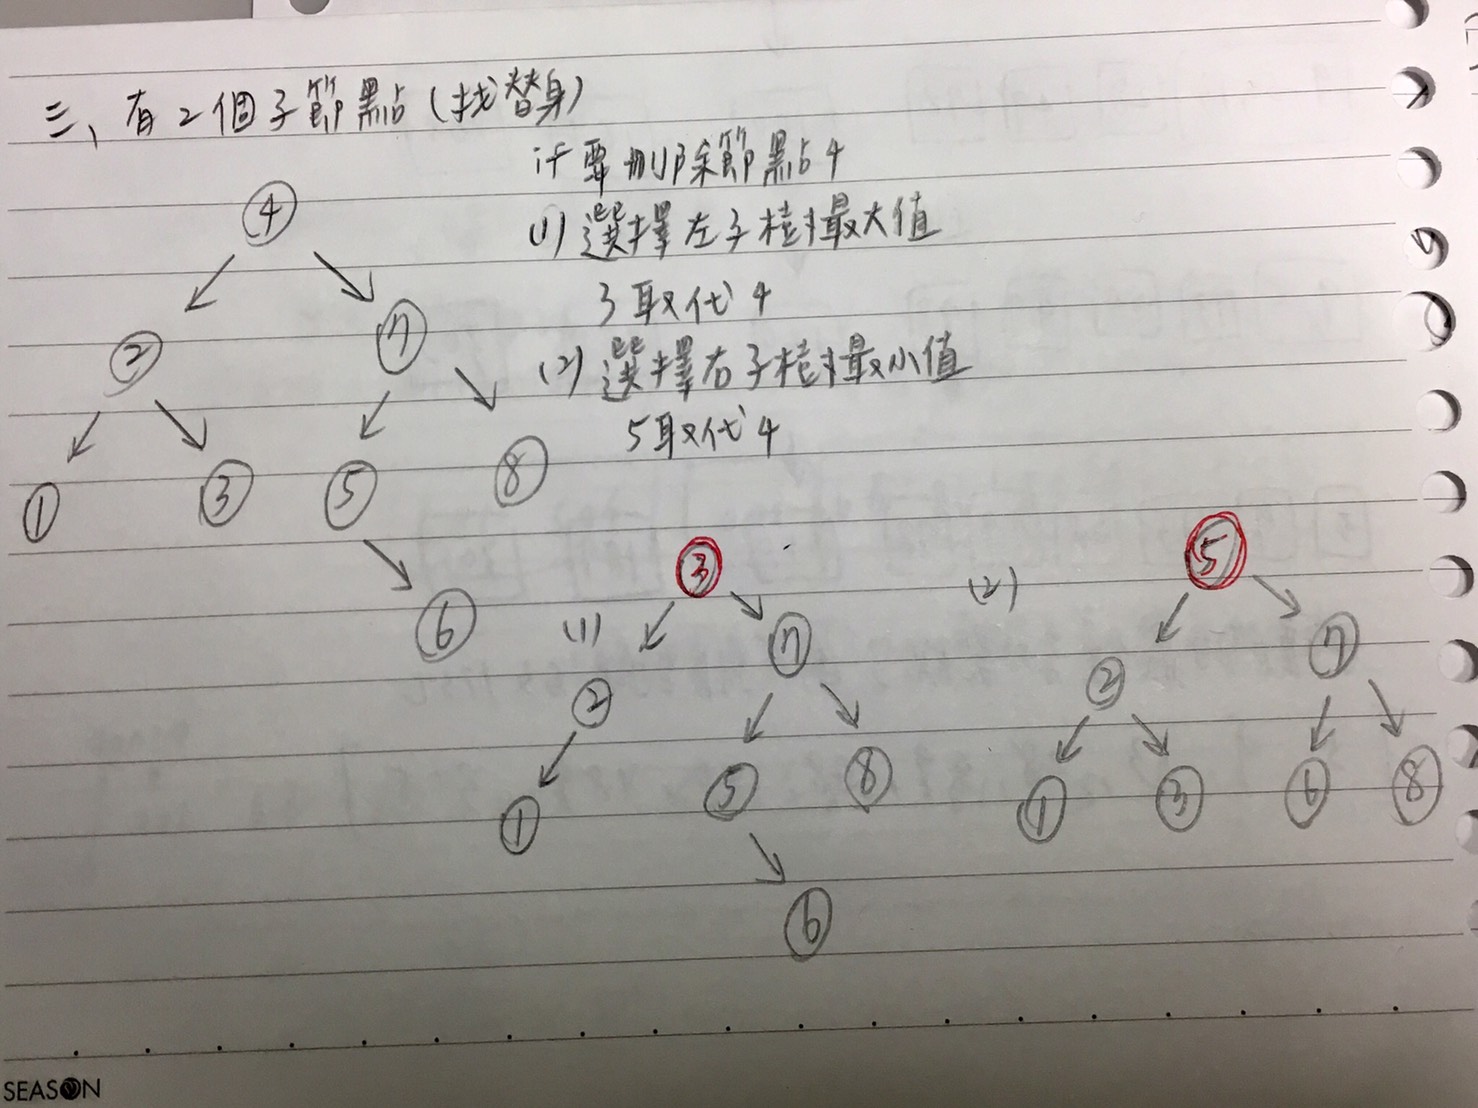 三、有2個子節點(找替身)
if要刪除節點4
(1)選擇左子樹最大值
3取代4
(2)選擇右子樹最小值
5取代4
4
2 7
1 3 5 8
6
(1)
3
2 7
1 5 8
6
(2)
5
2 7
1 3 6 8
SEASON